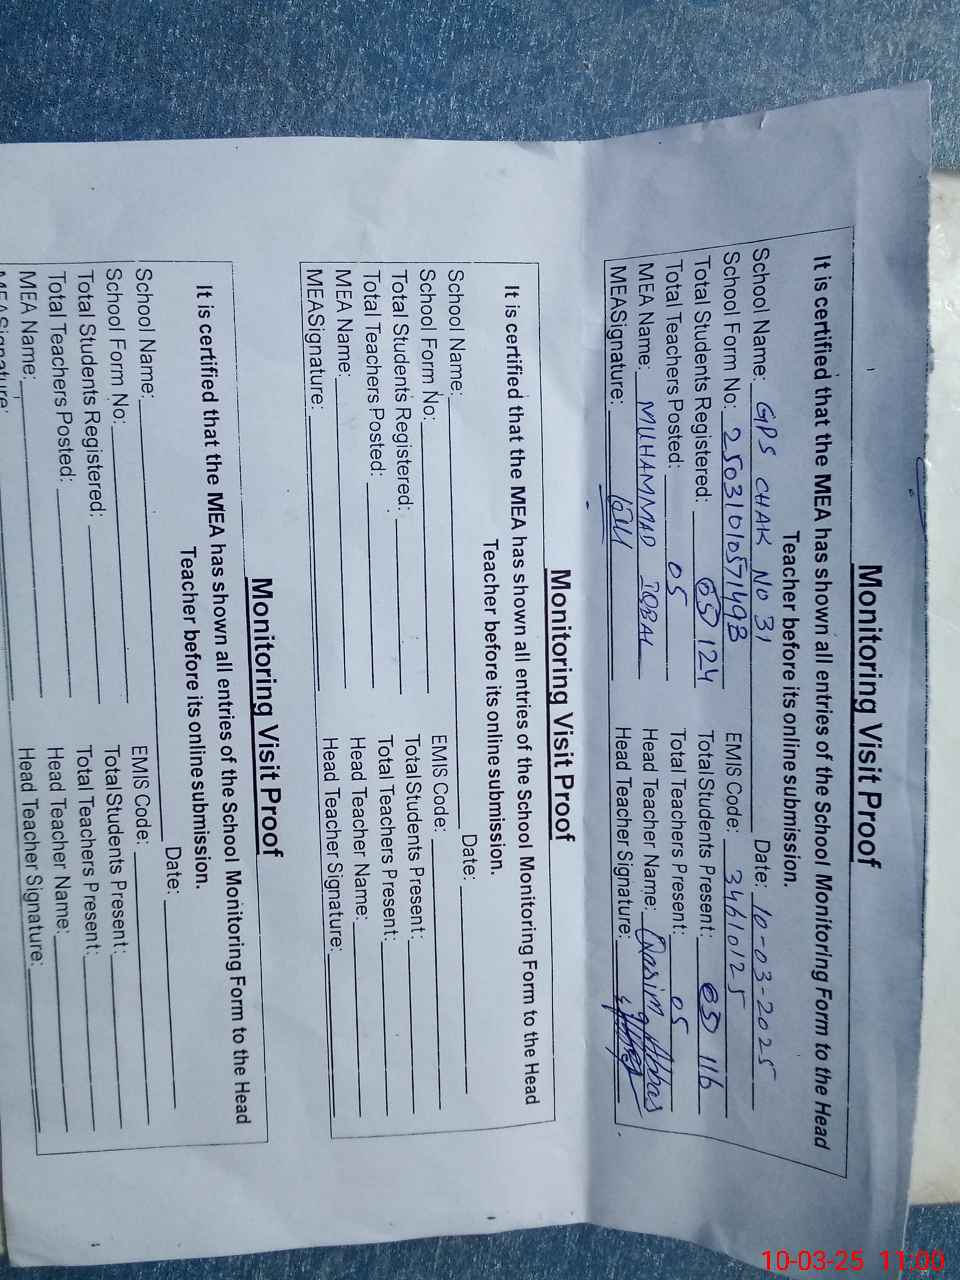 Monitoring Visit Proof
It is certified that the MEA has shown all entries of the School Monitoring Form to the Head
Teacher before its online submission.
School Name: GPS CHAK No 31 Date: 10-03-2025
School Form No: 2503101057149B EMIS Code: 34610125
Total Students Registered: 05 124 Total Students Present: 05 116
Total Teachers Posted: 05 Total Teachers Present: 05
MEA Name: MUHAMMAD IQBAL Head Teacher Name: Qasim Abbas
MEASignature: Head Teacher Signature:
Monitoring Visit Proof
It is certified that the MEA has shown all entries of the School Monitoring Form to the Head
Teacher before its online submission.
School Name: Date:
School Form No: EMIS Code:
Total Students Registered: Total Students Present:
Total Teachers Posted: Total Teachers Present:
MEA Name: Head Teacher Name:
MEASignature: Head Teacher Signature:
Monitoring Visit Proof
It is certified that the MEA has shown all entries of the School Monitoring Form to the Head
Teacher before its online submission.
School Name: Date:
School Form No: EMIS Code:
Total Students Registered: Total Students Present:
Total Teachers Posted: Total Teachers Present:
MEA Name: Head Teacher Name:
MEASignature: Head Teacher Signature:
10-03-25 11:00